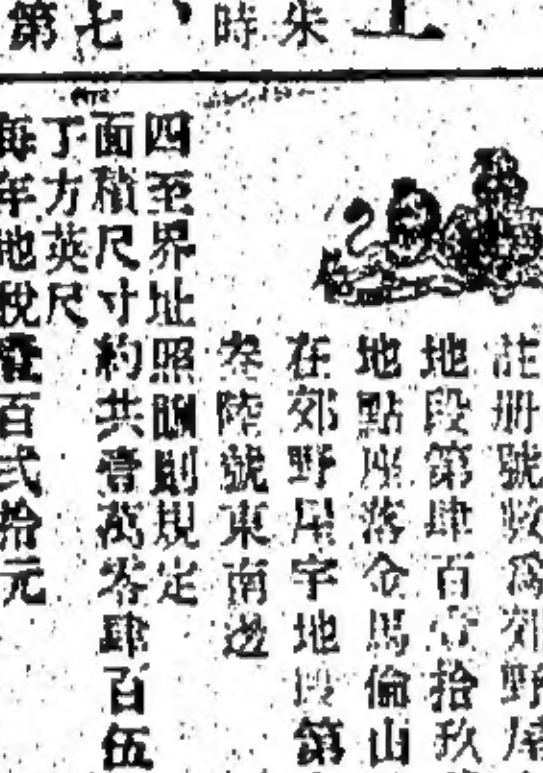 第七、時朱上
註冊號數為郊野屋
地段第肆百壹拾玖
地點座落金馬倫山
在郊野屋宇地段第
叁陸號東南邊
四至界址照圖則規定
面積尺寸約共壹萬零肆百伍
丁方英尺
每年地稅壹百弍拾元